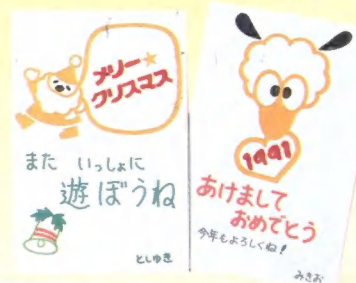 メリー★
クリスマス
また いっしょに
遊ぼうね
としゆき
1991
あけまして
おめでとう
今年もよろしくね!
みきお